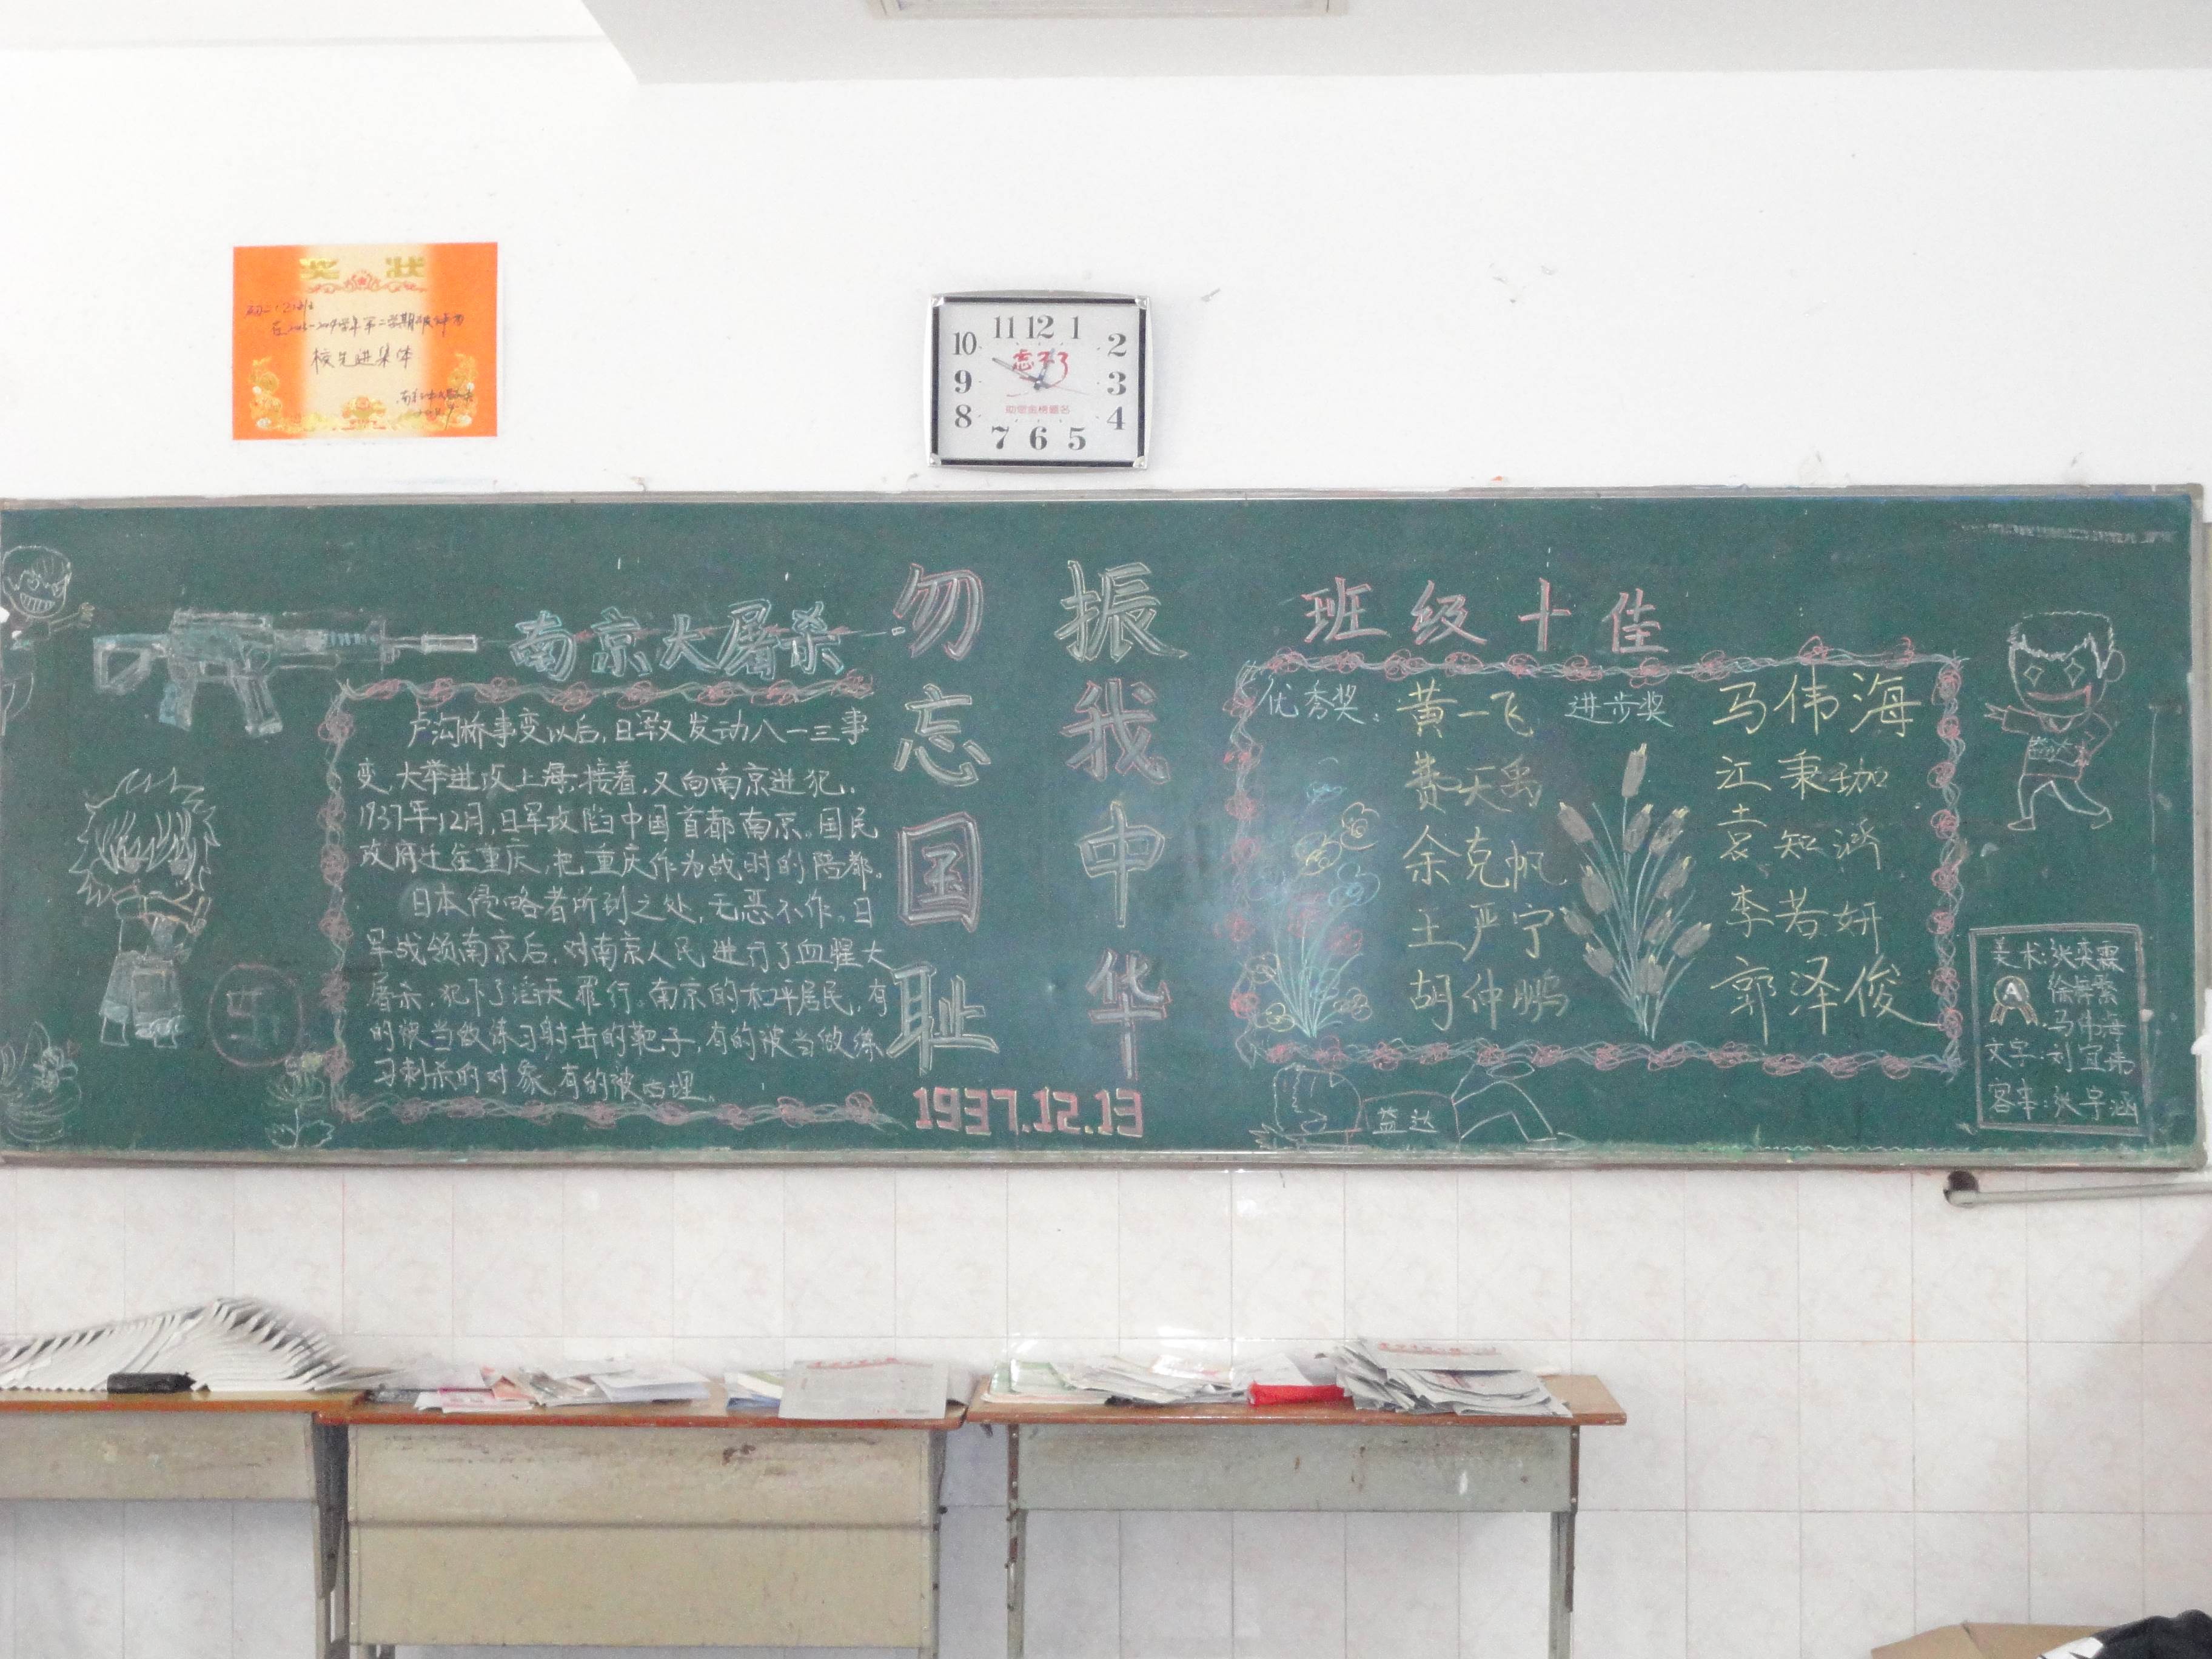 奖状
校先进集体
11 12 1
10 2
9 3
8 4
7 6 5
忘不了
助您金榜题名
南京大屠杀
卢沟桥事变以后,日军又发动八一三事
变,大举进攻上海,接着,又向南京进犯.
1937年12月,日军攻陷中国首都南京。国民
政府迁往重庆,把重庆作为战时的陪都。
日本侵略者所到之处,无恶不作。日
军战领南京后,对南京人民进行了血腥大
屠杀,犯下了滔天罪行.南京的和平居民,有
的被当做练习射击的靶子,有的被当做练
习刺杀的对象,有的被活埋。
勿忘国耻
振我中华
1937.12.13
班级十佳
优秀奖:
黄一飞
费天禹
余克帆
王严宁
胡仲鹏
进步奖
马伟海
江秉珈
袁知济
李若妍
郭泽俊
益达
美术:张奕霖
A
马伟海
文字:刘宜
客串:张宇涵